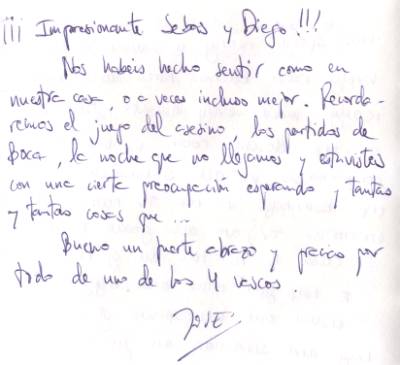 ¡¡¡ Impresionante Sebas y Diego!!!
Nos habeis hecho sentir como en
nuestra casa, o a veces incluso mejor. Recorda-
remos el juego del asesino, los partidos de
Boca, la noche que no llegamos y estuvisteis
con una cierta preocupación esperando y tantas
y tantas cosas que ...
Bueno un fuerte abrazo y gracias por
todo de uno de los 4 vascos.
JOSE